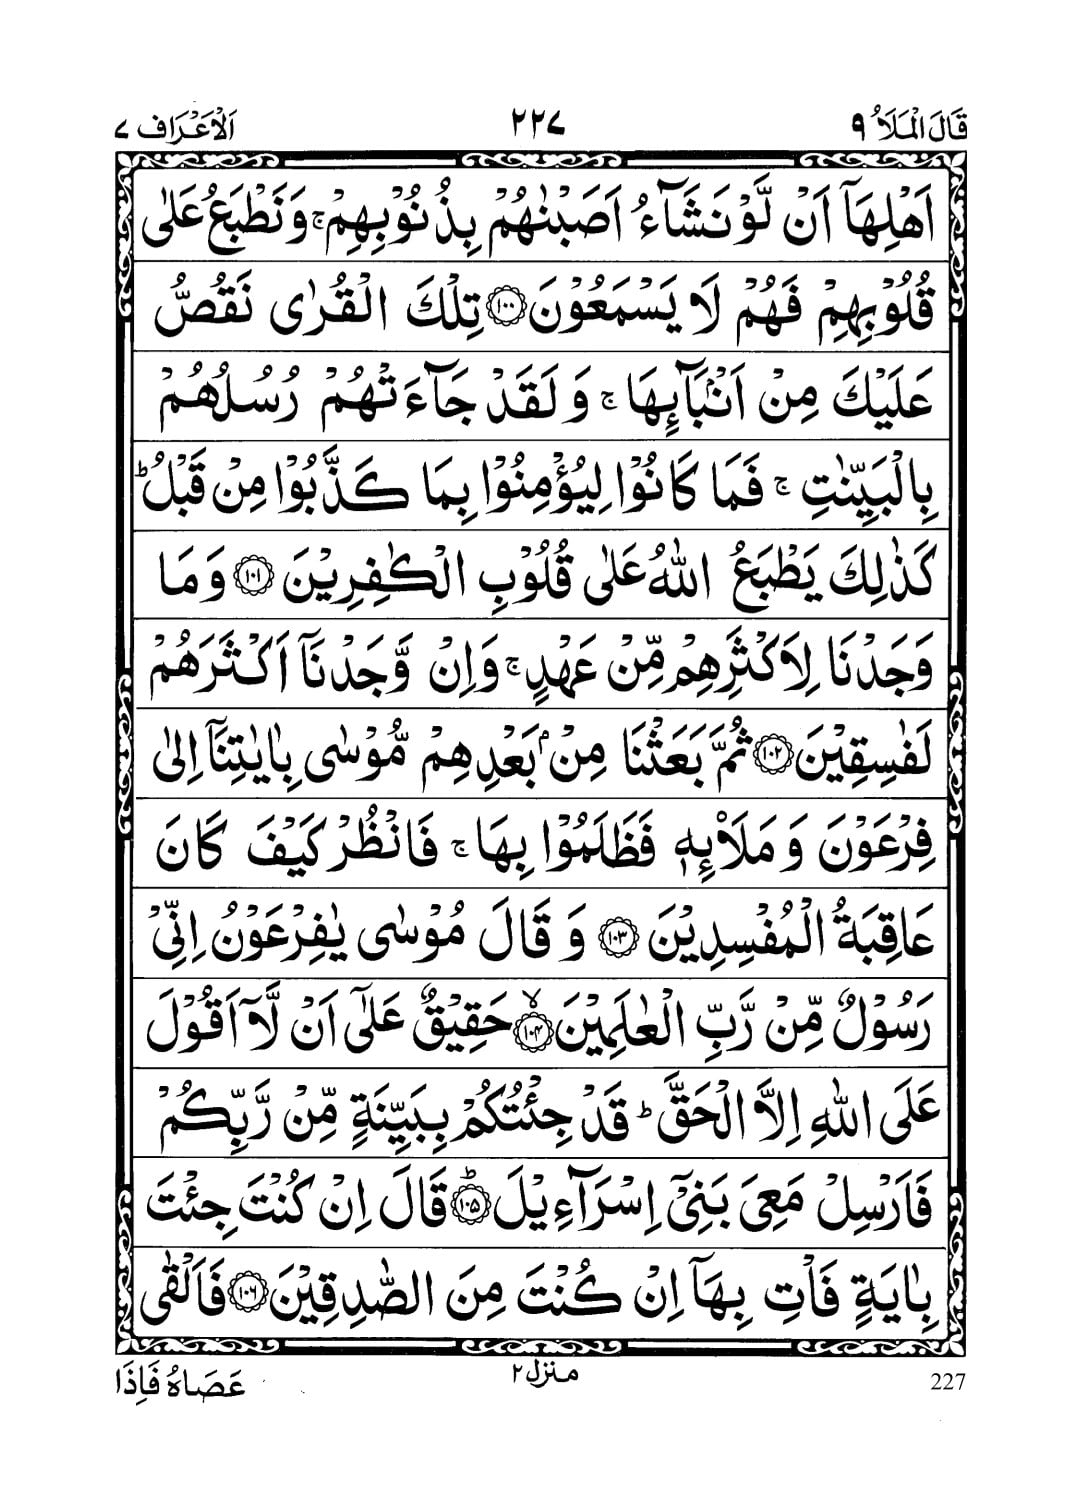 قَالَ الْمَلَاُ ٩ ٢٢٧ اَلْاَعْرَاف ٧
اَهْلِهَاۤ اَنْ لَّوْ نَشَآءُ اَصَبْنٰهُمْ بِذُنُوْبِهِمْ ۚ وَنَطْبَعُ عَلٰى
قُلُوْبِهِمْ فَهُمْ لَا يَسْمَعُوْنَ ﴿١٠٠﴾ تِلْكَ الْقُرٰى نَقُصُّ
عَلَيْكَ مِنْ اَنْۢبَآئِهَا ۚ وَلَقَدْ جَآءَتْهُمْ رُسُلُهُمْ
بِالْبَيِّنٰتِ ۚ فَمَا كَانُوْا لِيُؤْمِنُوْا بِمَا كَذَّبُوْا مِنْ قَبْلُ ؕ
كَذٰلِكَ يَطْبَعُ اللّٰهُ عَلٰى قُلُوْبِ الْكٰفِرِيْنَ ﴿١٠١﴾ وَمَا
وَجَدْنَا لِاَكْثَرِهِمْ مِّنْ عَهْدٍ ۚ وَاِنْ وَّجَدْنَاۤ اَكْثَرَهُمْ
لَفٰسِقِيْنَ ﴿١٠٢﴾ ثُمَّ بَعَثْنَا مِنْۢ بَعْدِهِمْ مُّوْسٰى بِاٰيٰتِنَاۤ اِلٰى
فِرْعَوْنَ وَمَلَا۟ئِهٖ فَظَلَمُوْا بِهَا ۚ فَانْظُرْ كَيْفَ كَانَ
عَاقِبَةُ الْمُفْسِدِيْنَ ﴿١٠٣﴾ وَقَالَ مُوْسٰى يٰفِرْعَوْنُ اِنِّيْ
رَسُوْلٌ مِّنْ رَّبِّ الْعٰلَمِيْنَ ۙ﴿١٠٤﴾ حَقِيْقٌ عَلٰۤى اَنْ لَّاۤ اَقُوْلَ
عَلَى اللّٰهِ اِلَّا الْحَقَّ ؕ قَدْ جِئْتُكُمْ بِبَيِّنَةٍ مِّنْ رَّبِّكُمْ
فَاَرْسِلْ مَعِيَ بَنِيْۤ اِسْرَآءِيْلَ ؕ﴿١٠٥﴾ قَالَ اِنْ كُنْتَ جِئْتَ
بِاٰيَةٍ فَاْتِ بِهَاۤ اِنْ كُنْتَ مِنَ الصّٰدِقِيْنَ ﴿١٠٦﴾ فَاَلْقٰى
227 منزل ٢ عَصَاهُ فَاِذَا